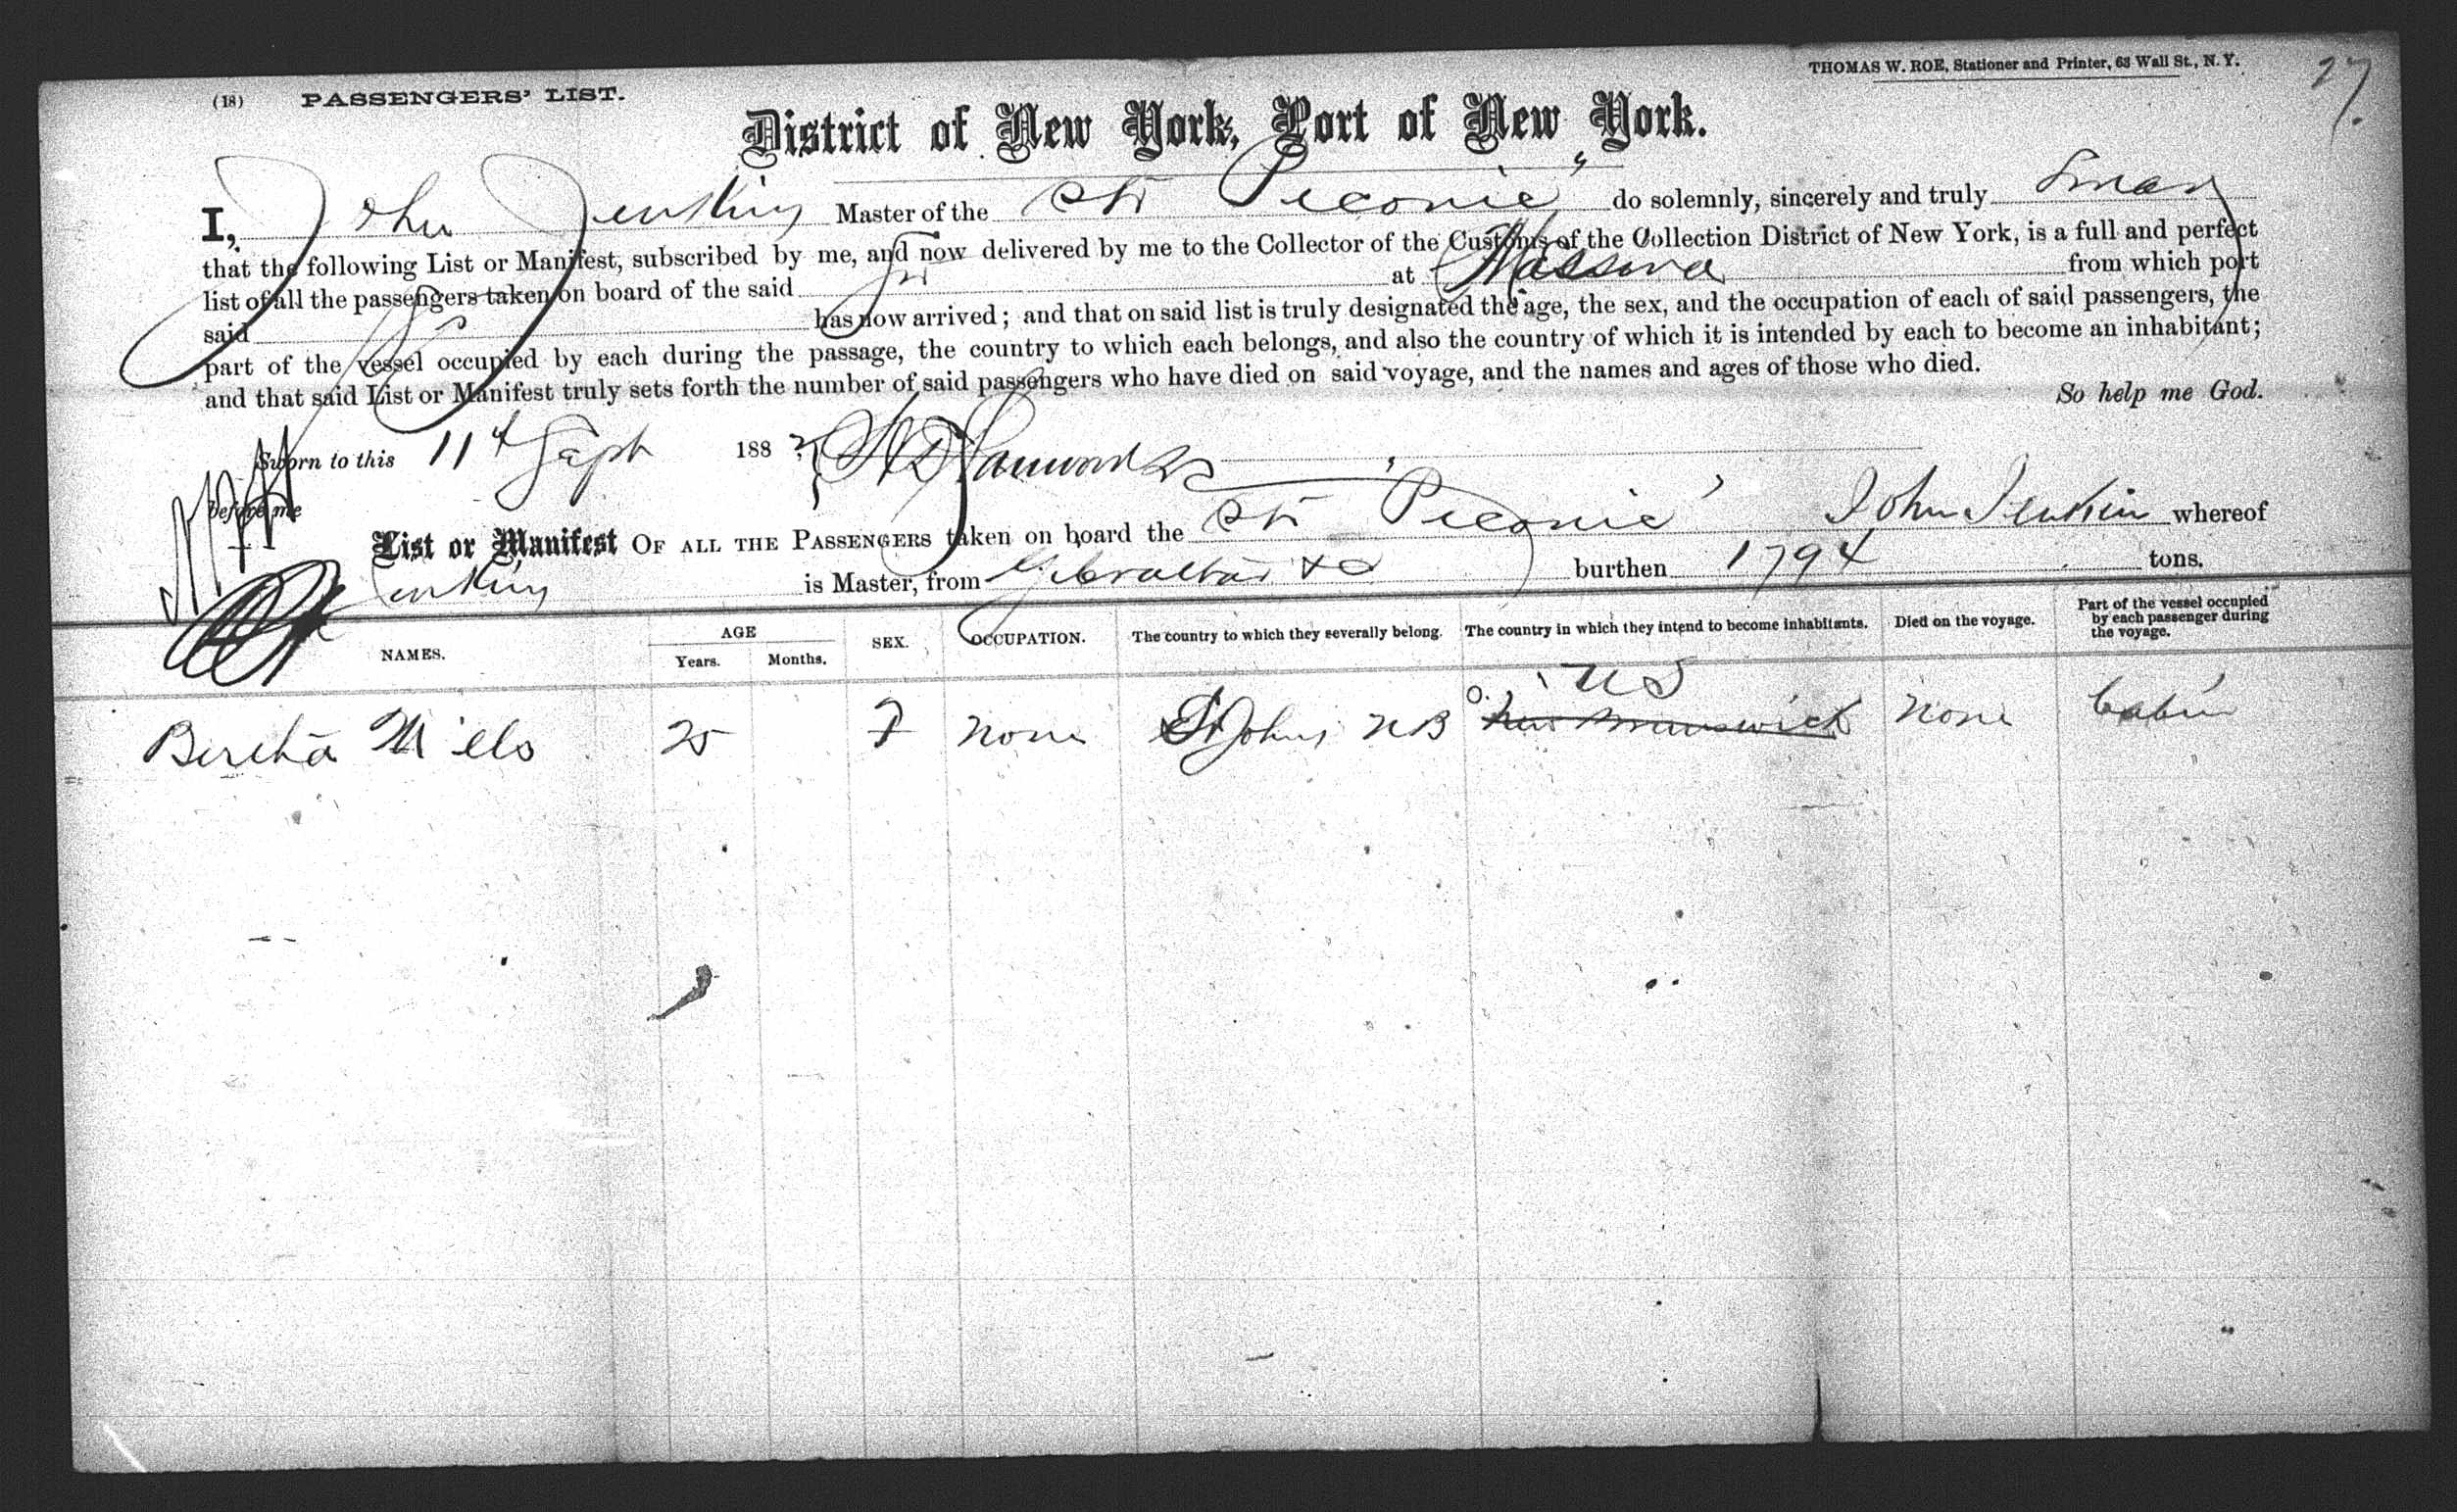 (18) PASSENGERS' LIST.
THOMAS W. ROE, Stationer and Printer, 63 Wall St., N. Y.
27.
District of New York, Port of New York.
I, John Jenkins Master of the Str "Peconic" do solemnly, sincerely and truly Swear
that the following List or Manifest, subscribed by me, and now delivered by me to the Collector of the Customs of the Collection District of New York, is a full and perfect
list of all the passengers taken on board of the said Str at Messina from which port
said has now arrived; and that on said list is truly designated the age, the sex, and the occupation of each of said passengers, the
part of the vessel occupied by each during the passage, the country to which each belongs, and also the country of which it is intended by each to become an inhabitant;
and that said List or Manifest truly sets forth the number of said passengers who have died on said voyage, and the names and ages of those who died.
So help me God.
Sworn to this 11th Sept 188
before me
List or Manifest OF ALL THE PASSENGERS taken on board the Str "Peconic" John Jenkin whereof
Jenkins is Master, from Gibraltar &c burthen 1794 tons.
NAMES. AGE Years. Months. SEX. OCCUPATION. The country to which they severally belong. The country in which they intend to become inhabitants. Died on the voyage. Part of the vessel occupied by each passenger during the voyage.
U S
Bertha Mills 25 F None St Johns NB New Brunswick None Cabin